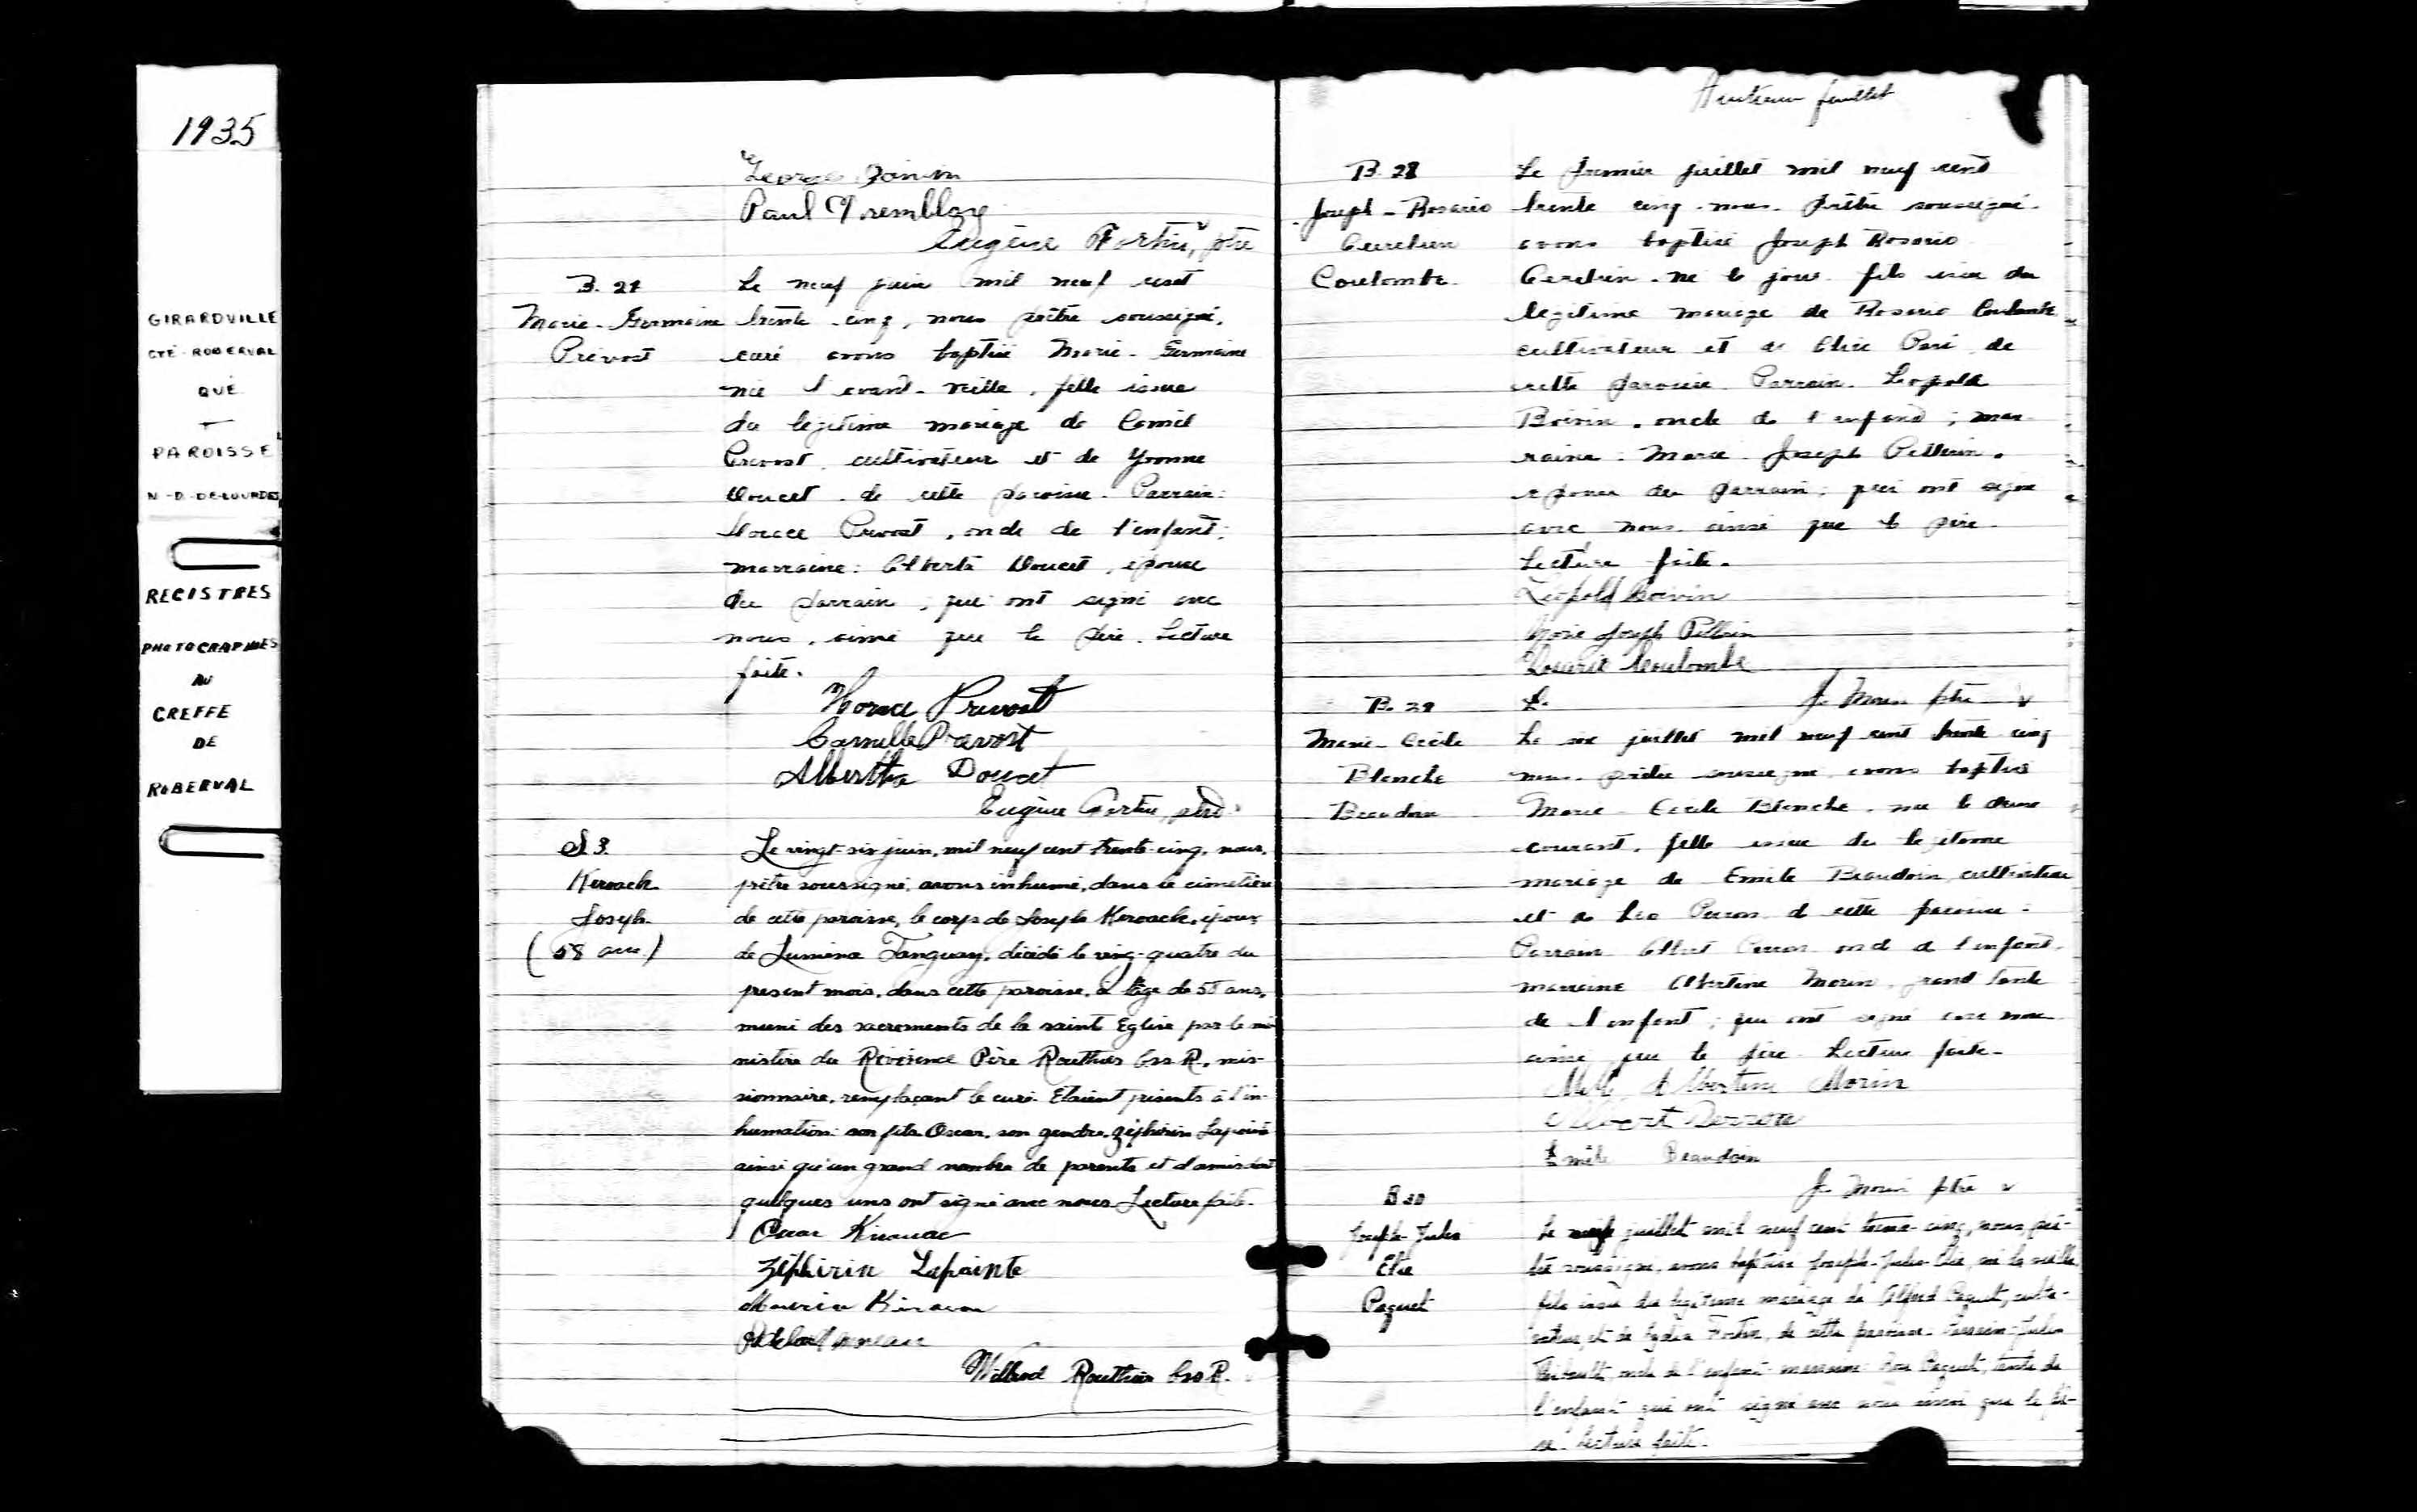 1935
GIRARDVILLE
CTÉ - ROBERVAL
QUÉ
PAROISSE
N-D-DE-LOURDES
REGISTRES
PHOTOGRAPHIÉS
AU
GREFFE
DE
ROBERVAL
Georges
Paul Tremblay
Eugène Fortin, ptre
B. 27
Marie-Germaine
Prévost
Le neuf juin mil neuf cent
trente-cinq, nous prêtre soussigné,
curé avons baptisé Marie-Germaine
née l'avant-veille, fille issue
du légitime mariage de Camil
Prévost, cultivateur et de Yvonne
Doucet de cette paroisse. Parrain:
Horace Prévost, oncle de l'enfant;
marraine: Alberta Doucet, épouse
du parrain, qui ont signé avec
nous, ainsi que le père. Lecture
faite.
Horace Prévost
Camille Prévost
Albertha Doucet
Eugène Fortin, ptre
S 3.
Keroack
Joseph
(58 ans)
Le vingt-six juin, mil neuf cent trente-cinq, nous,
prêtre soussigné, avons inhumé, dans le cimetière
de cette paroisse, le corps de Joseph Keroack, époux
de Lumina Tanguay, décédé le ving-quatre du
present mois, dans cette paroisse, à l'âge de 58 ans,
muni des sacrements de la saint Eglise par le mi
nistère du Révérend Père Routhier Css R., mis-
sionnaire, remplaçant le curé. Étaient présents à l'in-
humation: son fils Oscar, son gendre, Zéphirin Lapointe
ainsi qu'un grand nombre de parents et d'amis dont
quelques uns ont signé avec nous. Lecture faite.
Oscar Kirouac
Zéphirin Lapointe
Kirouac
Wilfrid Routhier Css R.
feuillet
B. 28
Joseph-Rosario
Coulombe
Le premier juillet mil neuf cent
trente cinq nous Prêtre soussigné
avons baptisé Joseph Rosario
né le jour fils issu du
légitime mariage de Rosario Coulombe
cultivateur et de Paré de
cette paroisse. Parrain. Léopold
Boivin, oncle de l'enfant; mar-
raine: Marie-Joseph Pelletier.
épouse du parrain; qui ont signé
avec nous ainsi que le père.
Lecture faite.
Léopold Boivin
Marie Joseph
Rosario Coulombe
J. Morin ptre
B. 29
Marie-Cécile
Blanche
Beaudoin
Le six juillet mil neuf cent trente cinq
nous prêtre soussigné avons baptisé
Marie-Cécile Blanche, née le deux
courant, fille issue du légitime
mariage de Emile Beaudoin cultivateur
et de Léa Perron de cette paroisse:
Parrain Albert Perron oncle de l'enfant,
marraine Albertine Morin, grand tante
de l'enfant; qui ont signé avec nous
ainsi que le père. Lecture faite.
Albertine Morin
Albert Perron
Emile Beaudoin
J. Morin ptre
B 30
Joseph-Jules
Elie
Paquet
Le neuf juillet mil neuf cent trente-cinq, nous, prê-
tre soussigné, avons baptisé Joseph-Jules-Elie, né la veille,
fils issu du légitime mariage de Alfred Paquet, culti-
vateur, et de Lydia Fortin, de cette paroisse. Parrain: Jules
Thibault, oncle de l'enfant marraine: Rose Paquet, tante de
l'enfant qui ont signé avec nous ainsi que le pè-
re. Lecture faite.